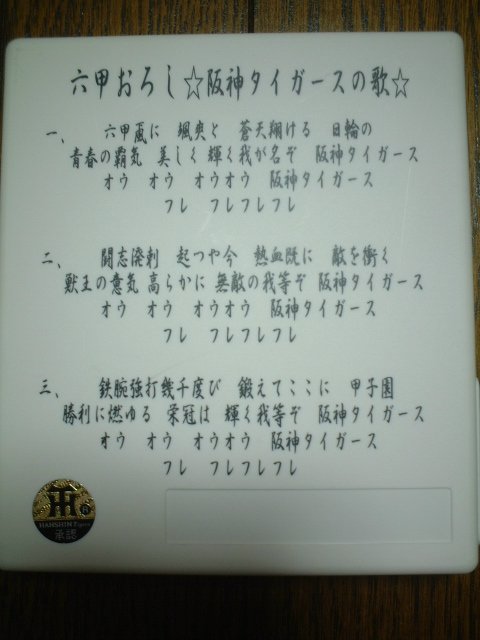 六甲おろし☆阪神タイガースの歌☆
一、 六甲颪に 颯爽と 蒼天翔ける 日輪の
青春の覇気 美しく 輝く我が名ぞ 阪神タイガース
オウ オウ オウオウ 阪神タイガース
フレ フレフレフレ
二、 闘志溌剌 起つや今 熱血既に 敵を衝く
獣王の意気 高らかに 無敵の我等ぞ 阪神タイガース
オウ オウ オウオウ 阪神タイガース
フレ フレフレフレ
三、 鉄腕強打幾千度び 鍛えてここに 甲子園
勝利に燃ゆる 栄冠は 輝く我等ぞ 阪神タイガース
オウ オウ オウオウ 阪神タイガース
フレ フレフレフレ
HANSHIN Tigers
承認